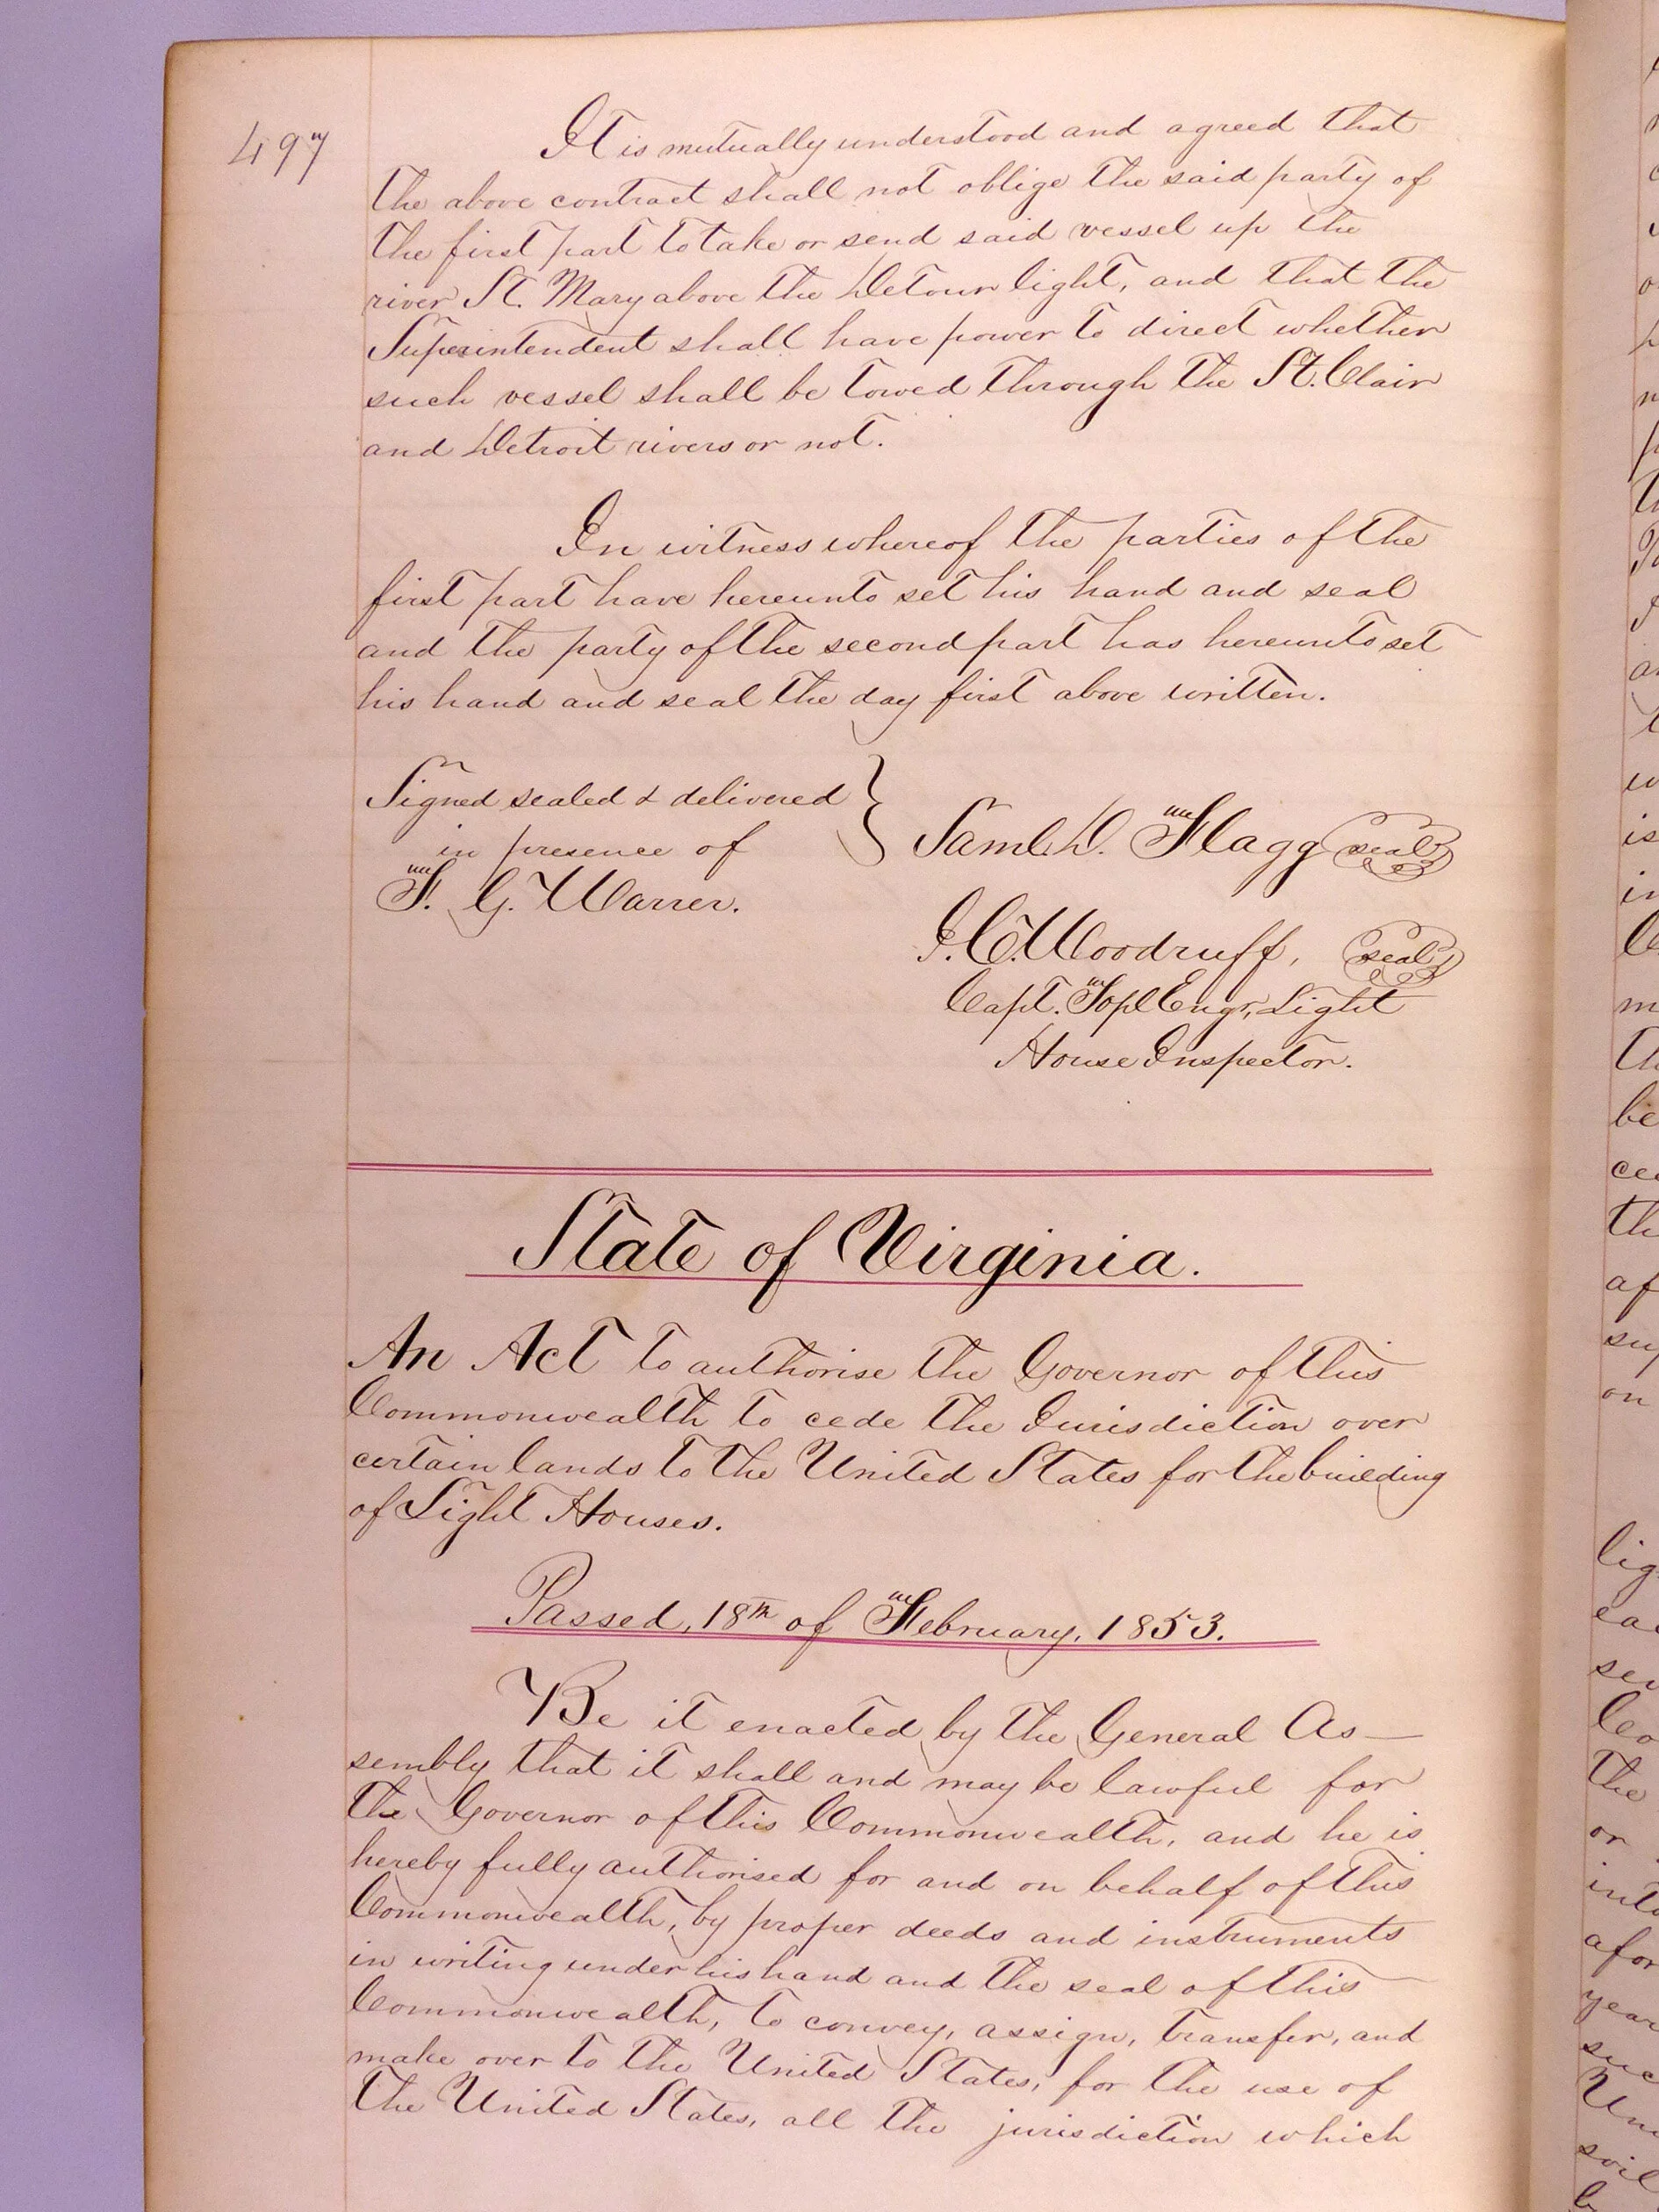 497
It is mutually understood and agreed that
the above contract shall not oblige the said party of
the first part to take or send said vessel up the
river St. Mary above the Detour light, and that the
Superintendent shall have power to direct whether
such vessel shall be towed through the St. Clair
and Detroit rivers or not.
In witness whereof the parties of the
first part have hereunto set his hand and seal
and the party of the second part has hereunto set
his hand and seal the day first above written.
Signed sealed & delivered
in presence of
F. G. Warrer.
Saml. D. Flagg seal
I. C. Woodruff, seal
Capt. Topl Engr, Light
House Inspector.
State of Virginia.
An Act to authorise the Governor of this
Commonwealth to cede the Jurisdiction over
certain lands to the United States for the building
of Light Houses.
Passed, 18th of February, 1853.
Be it enacted by the General As—
sembly that it shall and may be lawful for
the Governor of this Commonwealth, and he is
hereby fully authorised for and on behalf of this
Commonwealth, by proper deeds and instruments
in writing under his hand and the seal of this
Commonwealth, to convey, assign, transfer, and
make over to the United States, for the use of
the United States, all the jurisdiction which